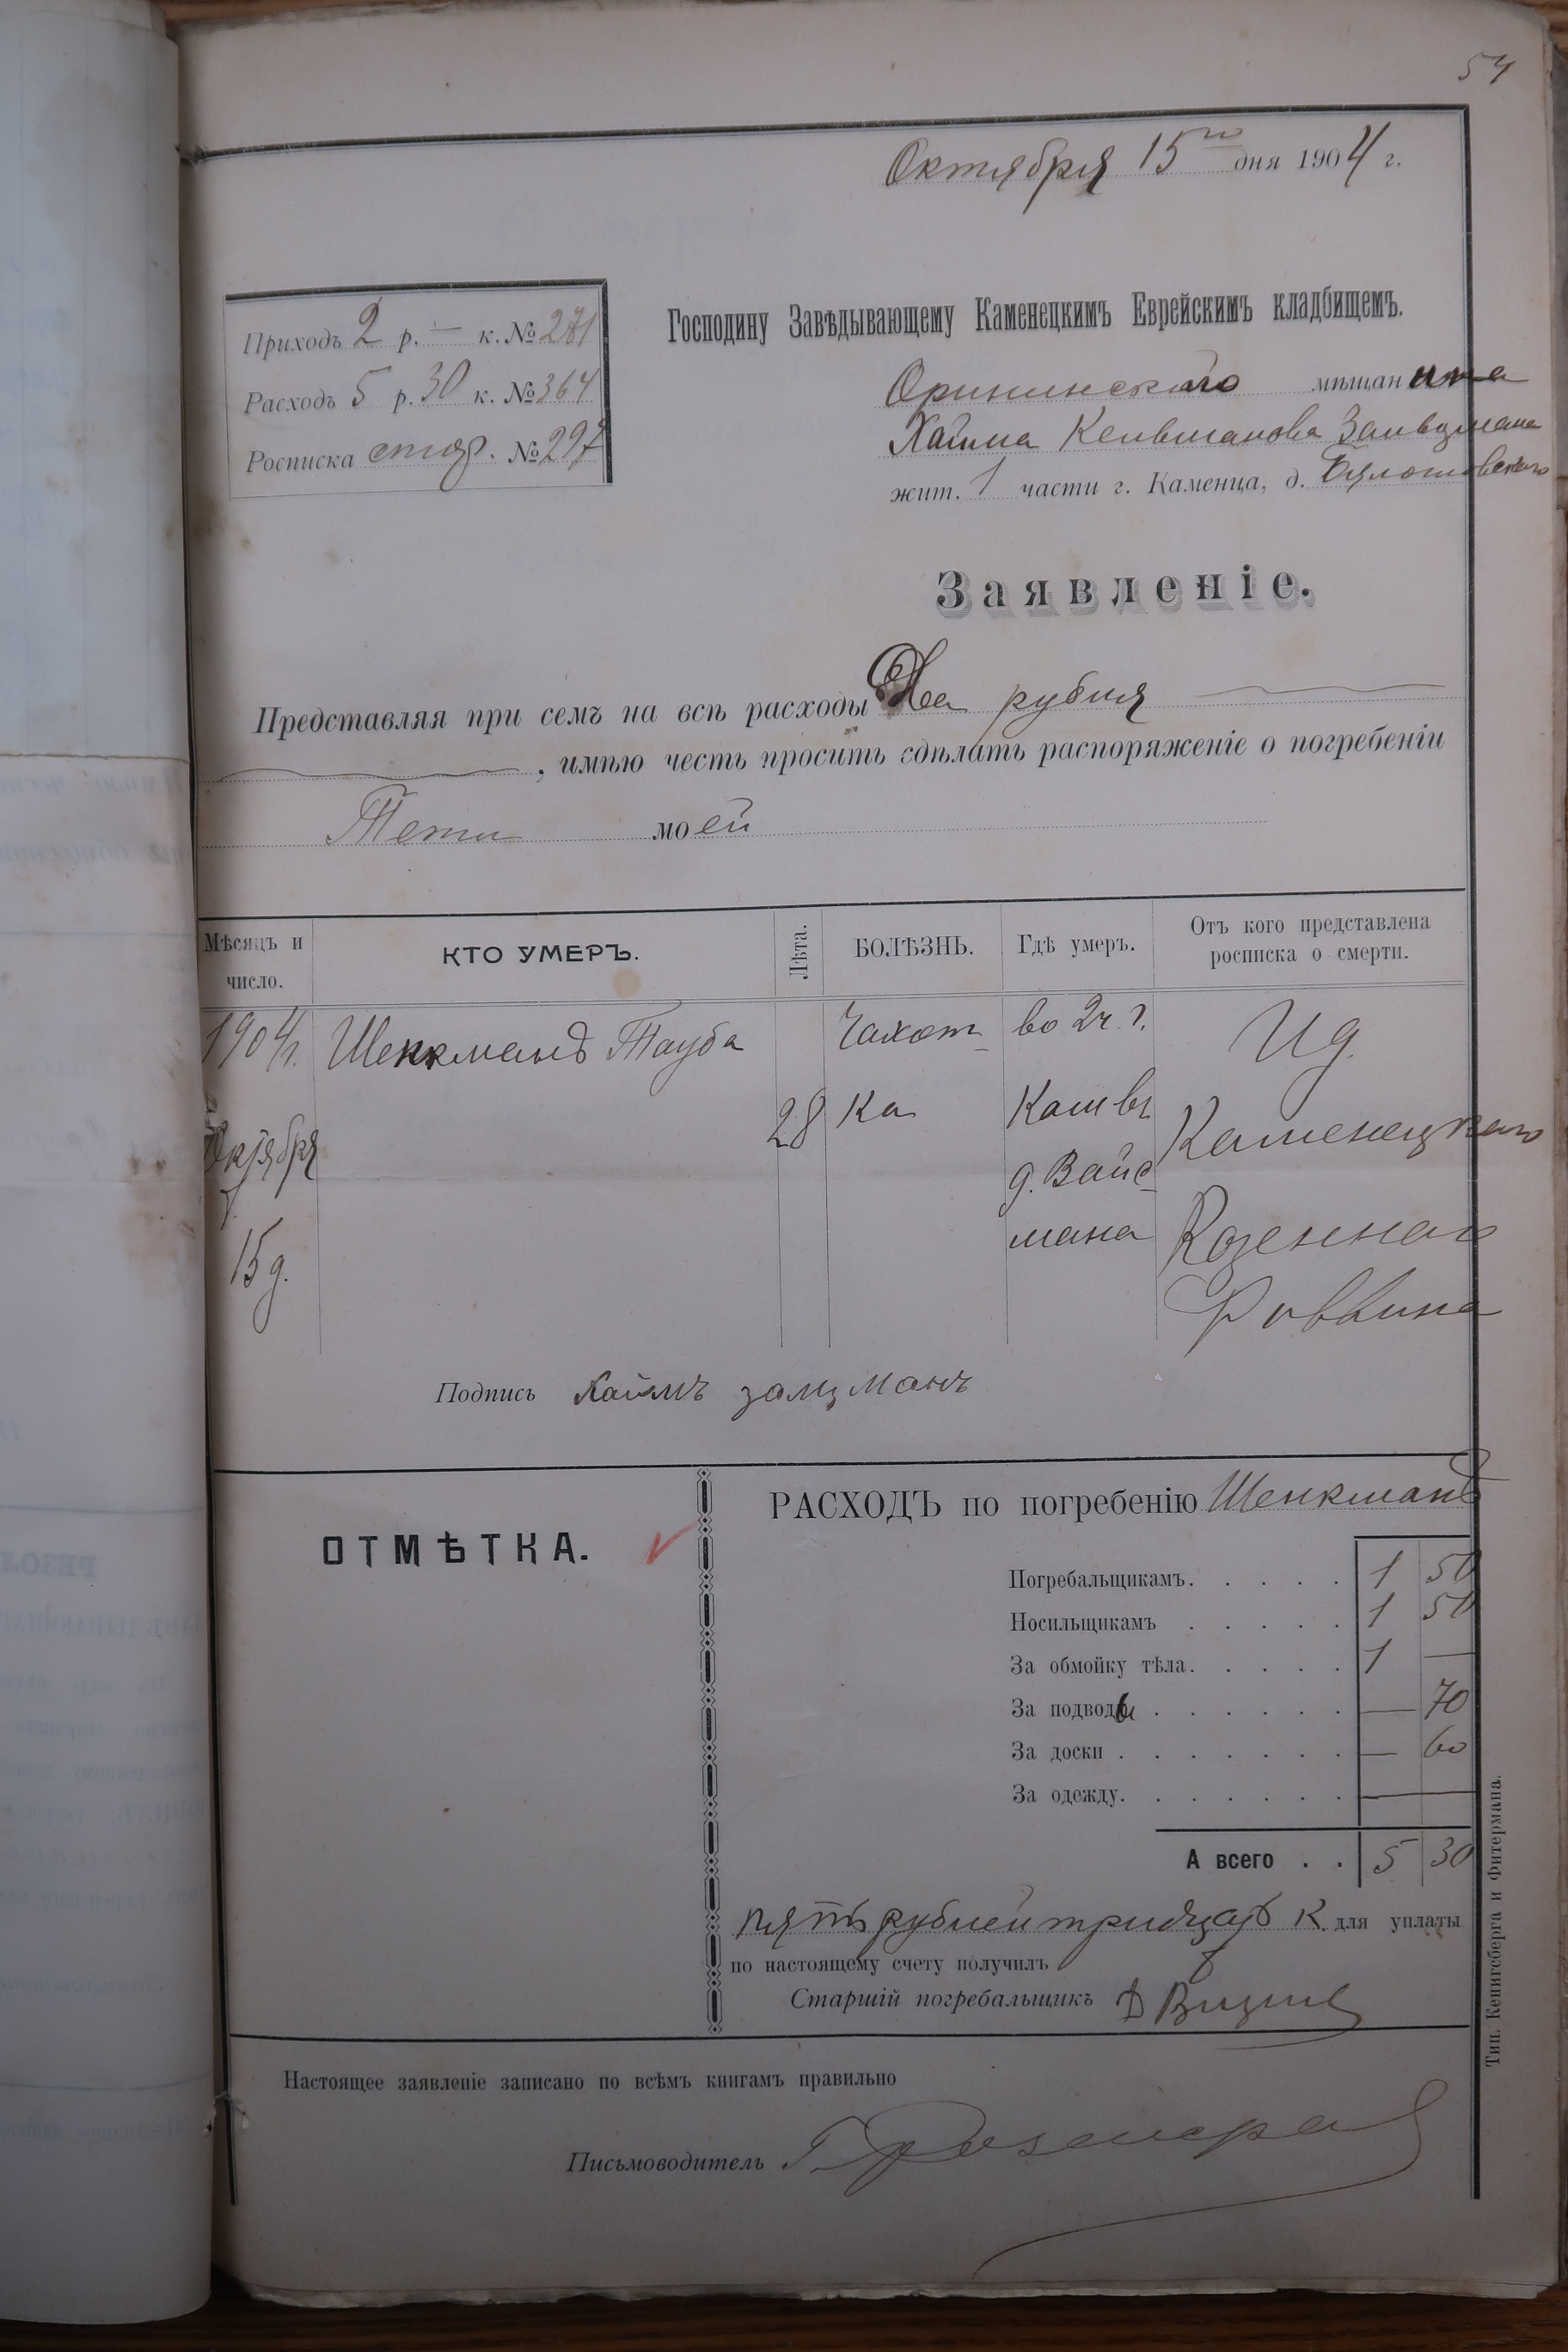 54
Октября 15го дня 1904 г.
Приходъ 2 р. — к. № 271
Расходъ 5 р. 30 к. № 364
Росписка стор. № 297
Господину Завѣдывающему Каменецкимъ Еврейскимъ кладбищемъ.
Орининского мѣщанина
Хаима Зальцмана
жит. 1 части г. Каменца, д.
Заявленіе.
Представляя при семъ на всѣ расходы Два рубля
, имѣю честь просить сдѣлать распоряженіе о погребеніи
Тети моей
Мѣсяцъ и число.
КТО УМЕРЪ.
Лѣта.
БОЛѢЗНЬ.
Гдѣ умеръ.
Отъ кого представлена росписка о смерти.
1904 г. Октября 15 д.
Шенкманъ Тауба
28
Чахот-
ка
во 2 ч. г.
Кам въ
д. Вайс-
мана
Ид.
Каменецкаго
Казеннаго
Раввина
Подпись Хаимъ залцманъ
ОТМѢТКА.
РАСХОДЪ по погребенію Шенкманъ
Погребальщикамъ. . . . . 1 50
Носильщикамъ . . . . . 1 50
За обмойку тѣла. . . . . 1 —
За подводы . . . . . . — 70
За доски . . . . . . . — 60
За одежду. . . . . . . —
А всего . . 5 30
пять рублей тридцать к. для уплаты
по настоящему счету получилъ
Старшій погребальщикъ
Тип. Кенигсберга и Фитермана.
Настоящее заявленіе записано по всѣмъ книгамъ правильно
Письмоводитель